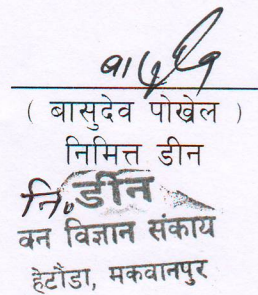 ( बासुदेव पोखेल )
निमित्त डीन
नि. डीन
वन विज्ञान संकाय
हेटौडा, मकवानपुर